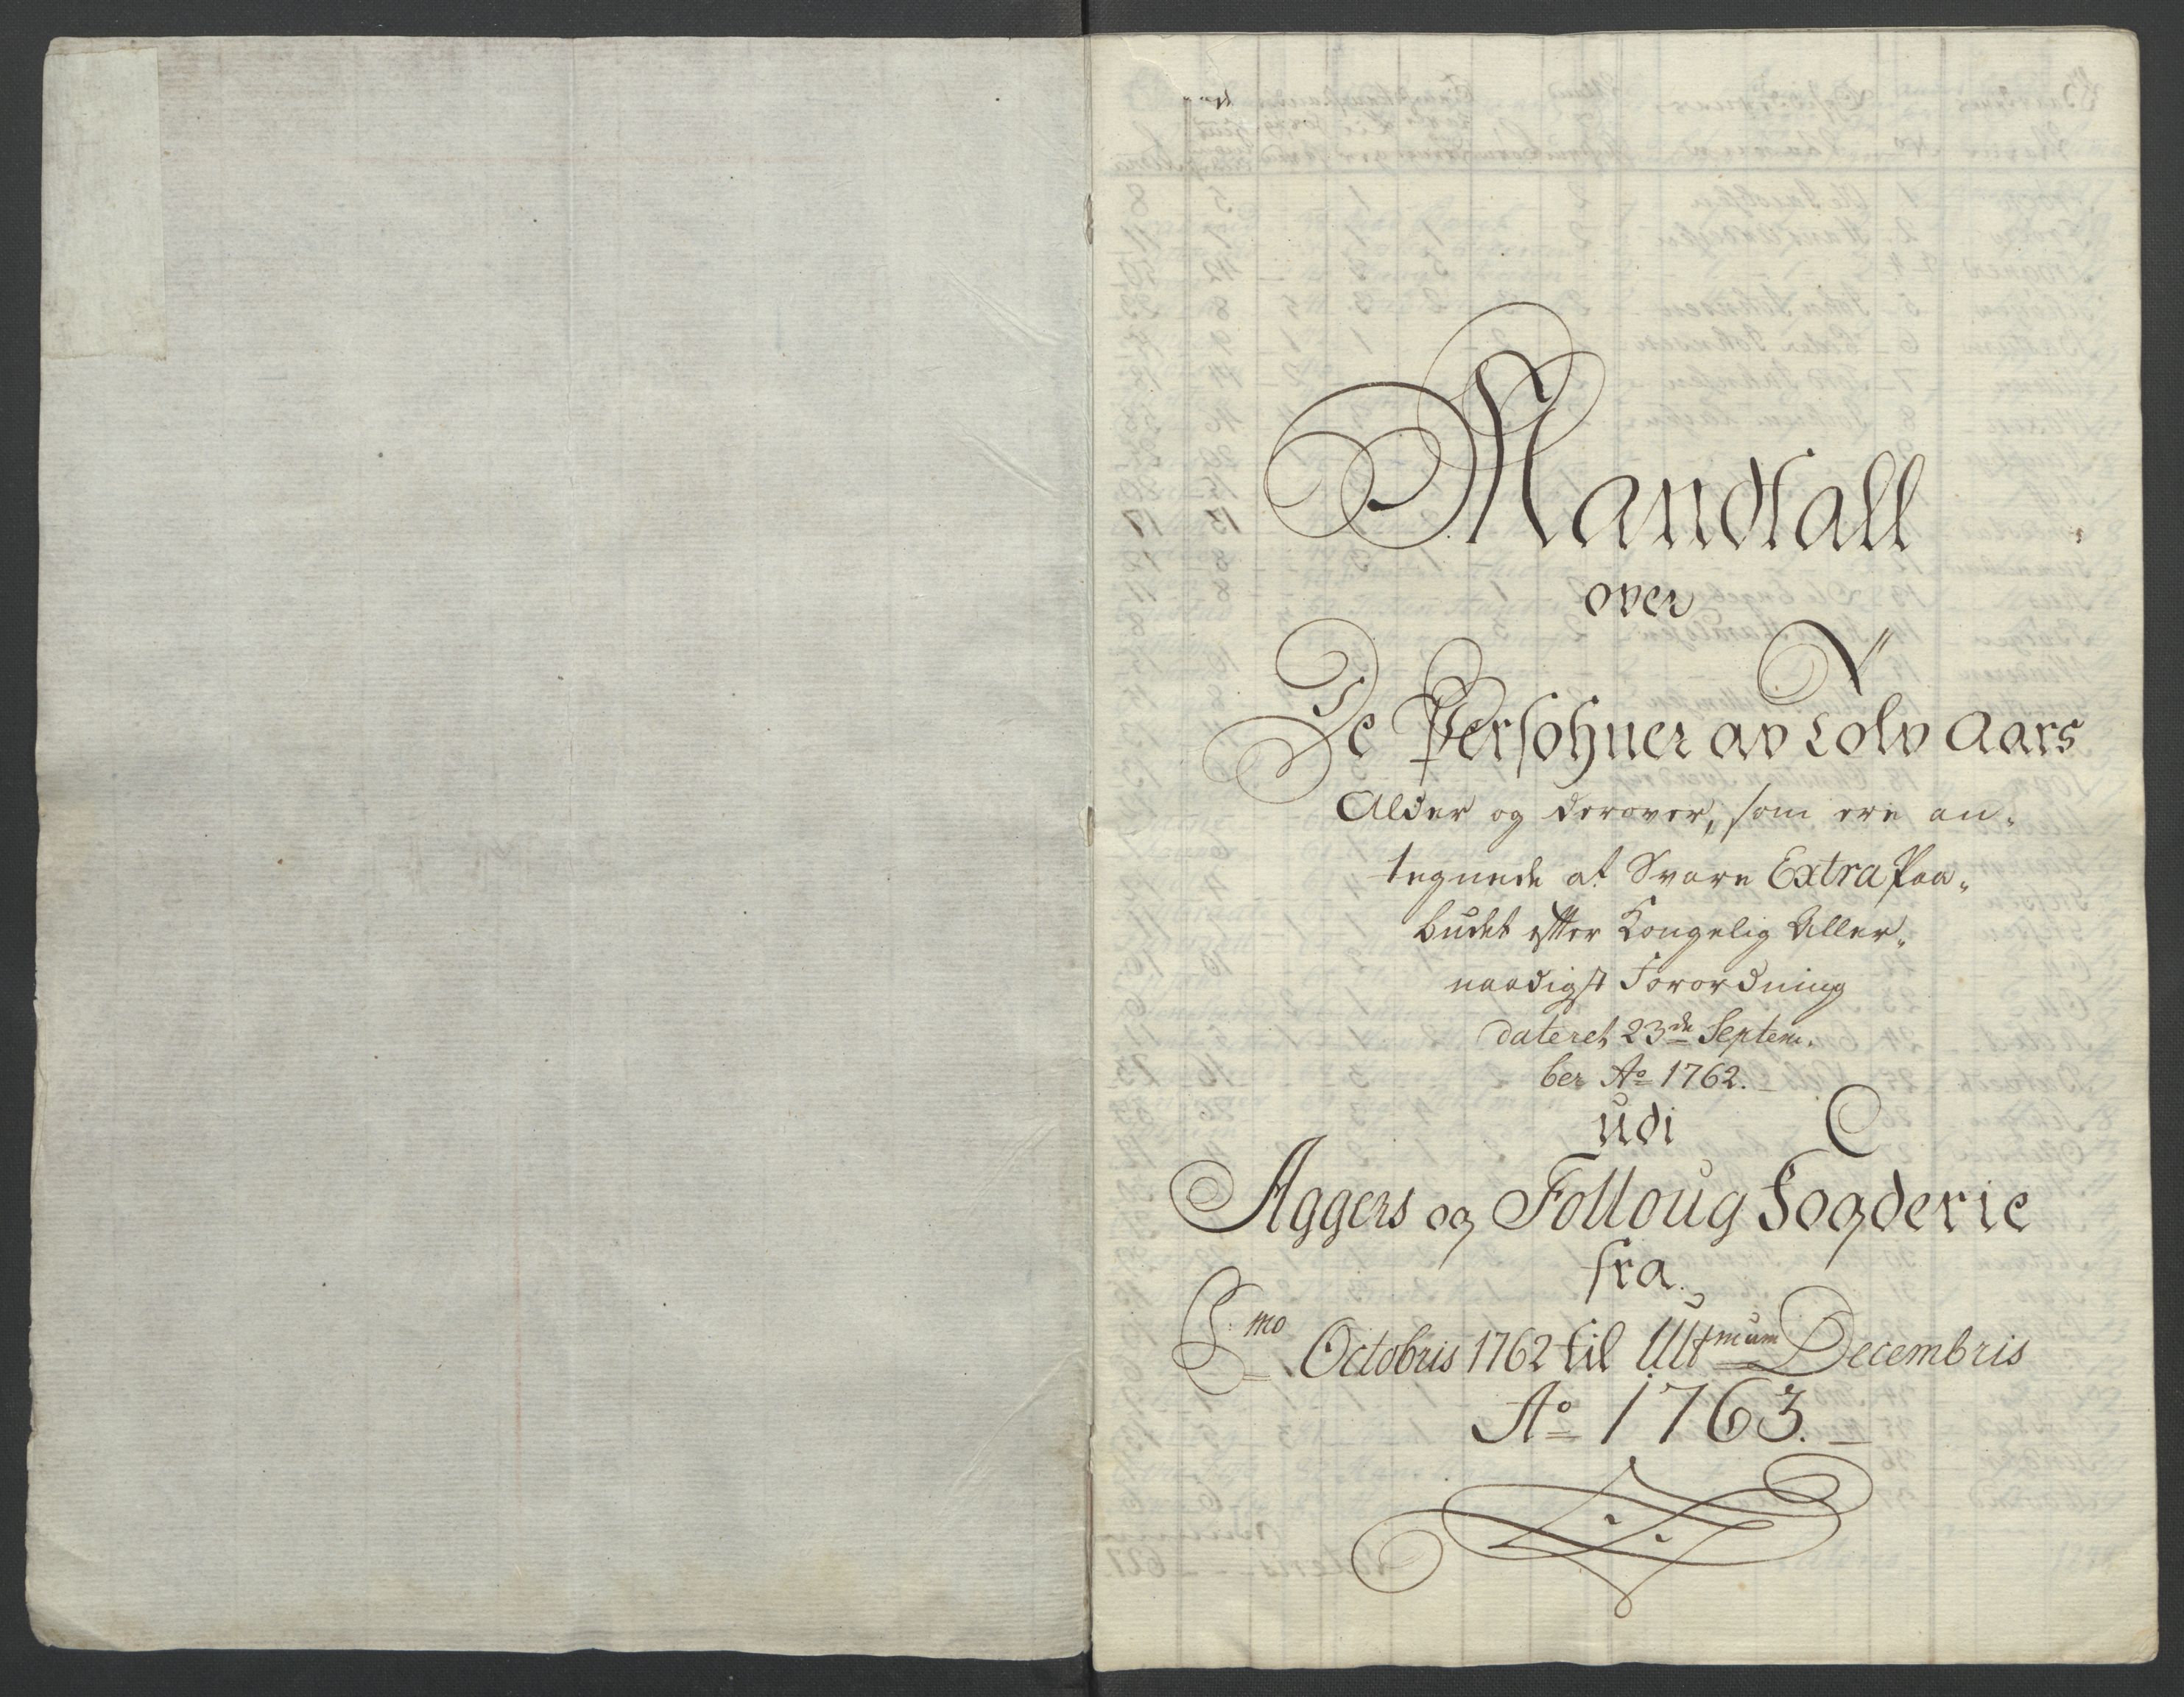 Mandtall
over
De Persohner av Tolv Aars
Alder og derover, som ere an-
tegnede at Svare Extra Paa-
budet efter Kongelig Aller-
naadigst Forordning
dateret 23de Septem-
ber Ao 1762.
udi
Aggers og Folloug Fogderie
fra
Imo Octobris 1762 til Ultmum Decembris
Ao 1763.